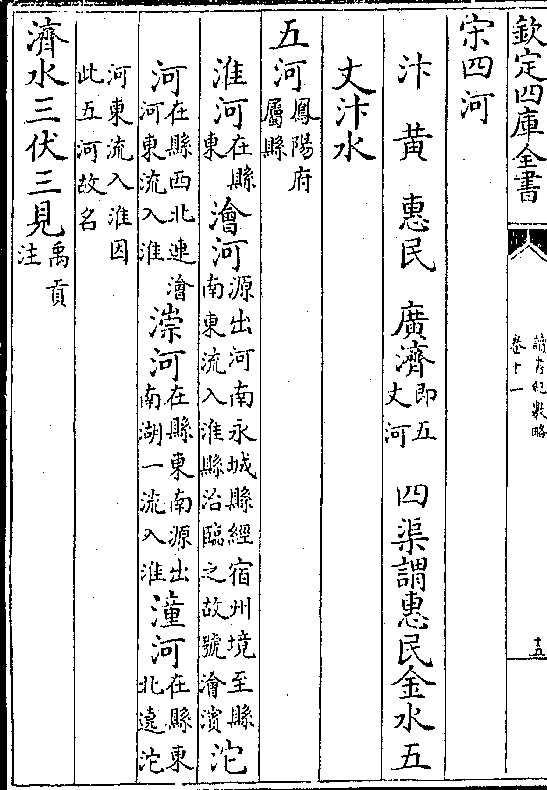 欽定四庫全書
讀書紀數略
卷十一
十五
宋四河
汴 黄 惠民 廣濟即五丈河 四渠謂惠民金水五
丈汴水
五河鳳陽府屬縣
淮河在縣東 澮河源出河南永城縣經宿州境至縣南東流入淮縣治臨之故號澮濱 沱
河在縣西北連澮河東流入淮 漴河在縣東南源出南湖一流入淮 潼河在縣東北遠沱
河東流入淮因此五河故名
濟水三伏三見禹貢注